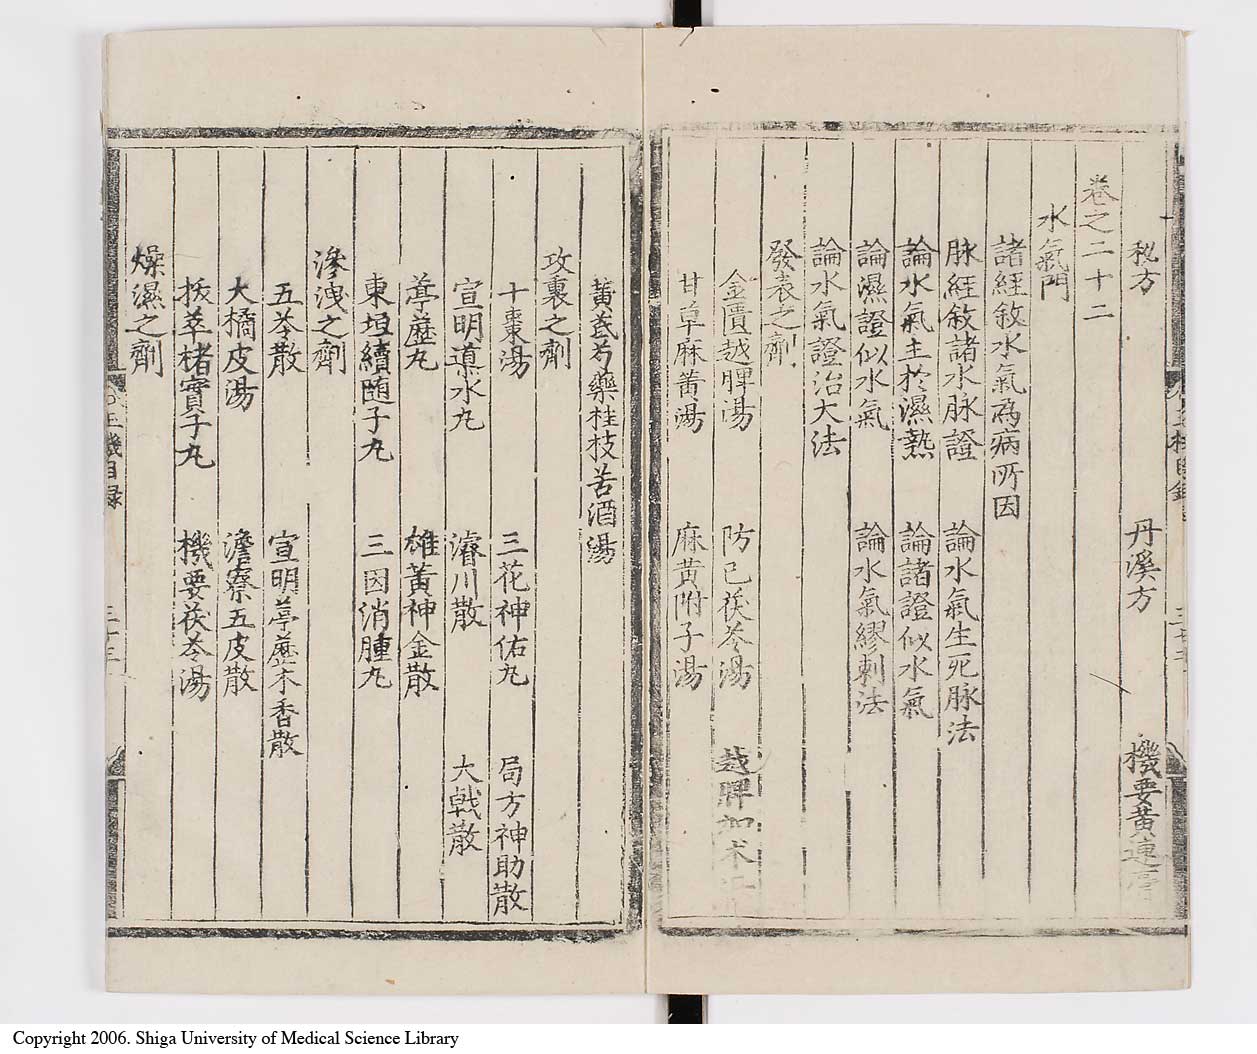 秘方 丹溪方 機要黄連膏
卷之二十二
水氣門
諸經敘水氣爲病所因
脉經敘諸水脉證 論水氣生死脉法
論水氣主於濕熱 論諸證似水氣
論濕證似水氣 論水氣繆刺法
論水氣證治大法
發表之劑
金匱越脾湯 防己茯苓湯 越脾加术
甘草麻黄湯 麻黄附子湯
黄芪芍藥桂枝苦酒湯
攻裏之劑
十棗湯 三花神佑丸 局方神助散
宣明導水丸 濬川散 大戟散
葶歷丸 雄黄神金散
東垣續隨子丸 三因消腫丸
滲洩之劑
五苓散 宣明葶藶木香散
大橘皮湯 澹寮五皮散
拔萃楮實子丸 機要茯苓湯
燥濕之劑
玉機目録 三十三
Copyright 2006. Shiga University of Medical Science Library